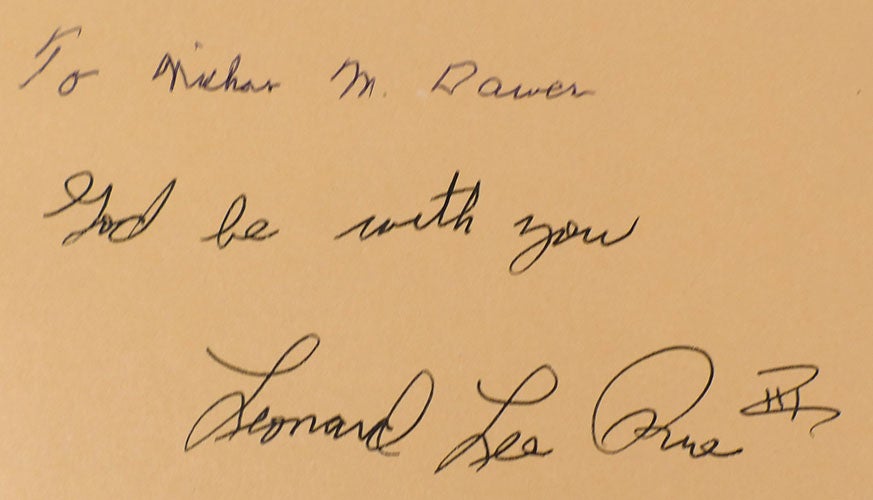 To Nichar M. Dawer
God be with you
Leonard Lee Rue III